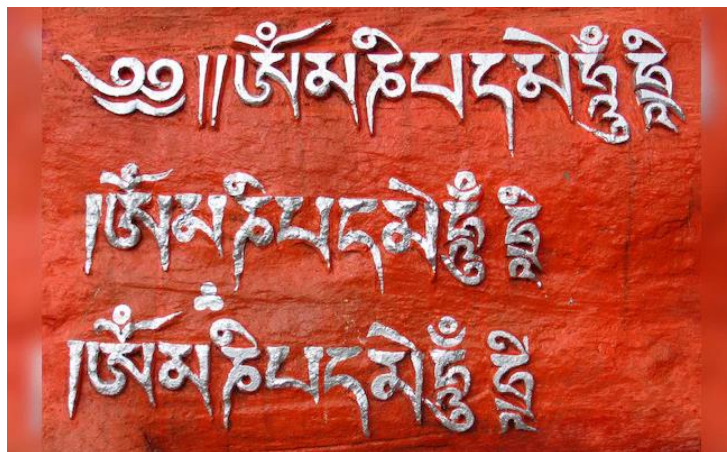 ༄༅།།ཨོཾམཎིཔདམེཧཱུྃཧྲཱི
།ཨོཾམཎིཔདམེཧཱུྃཧྲཱི
།ཨོཾམཎིཔདམེཧཱུྃཧྲཱི